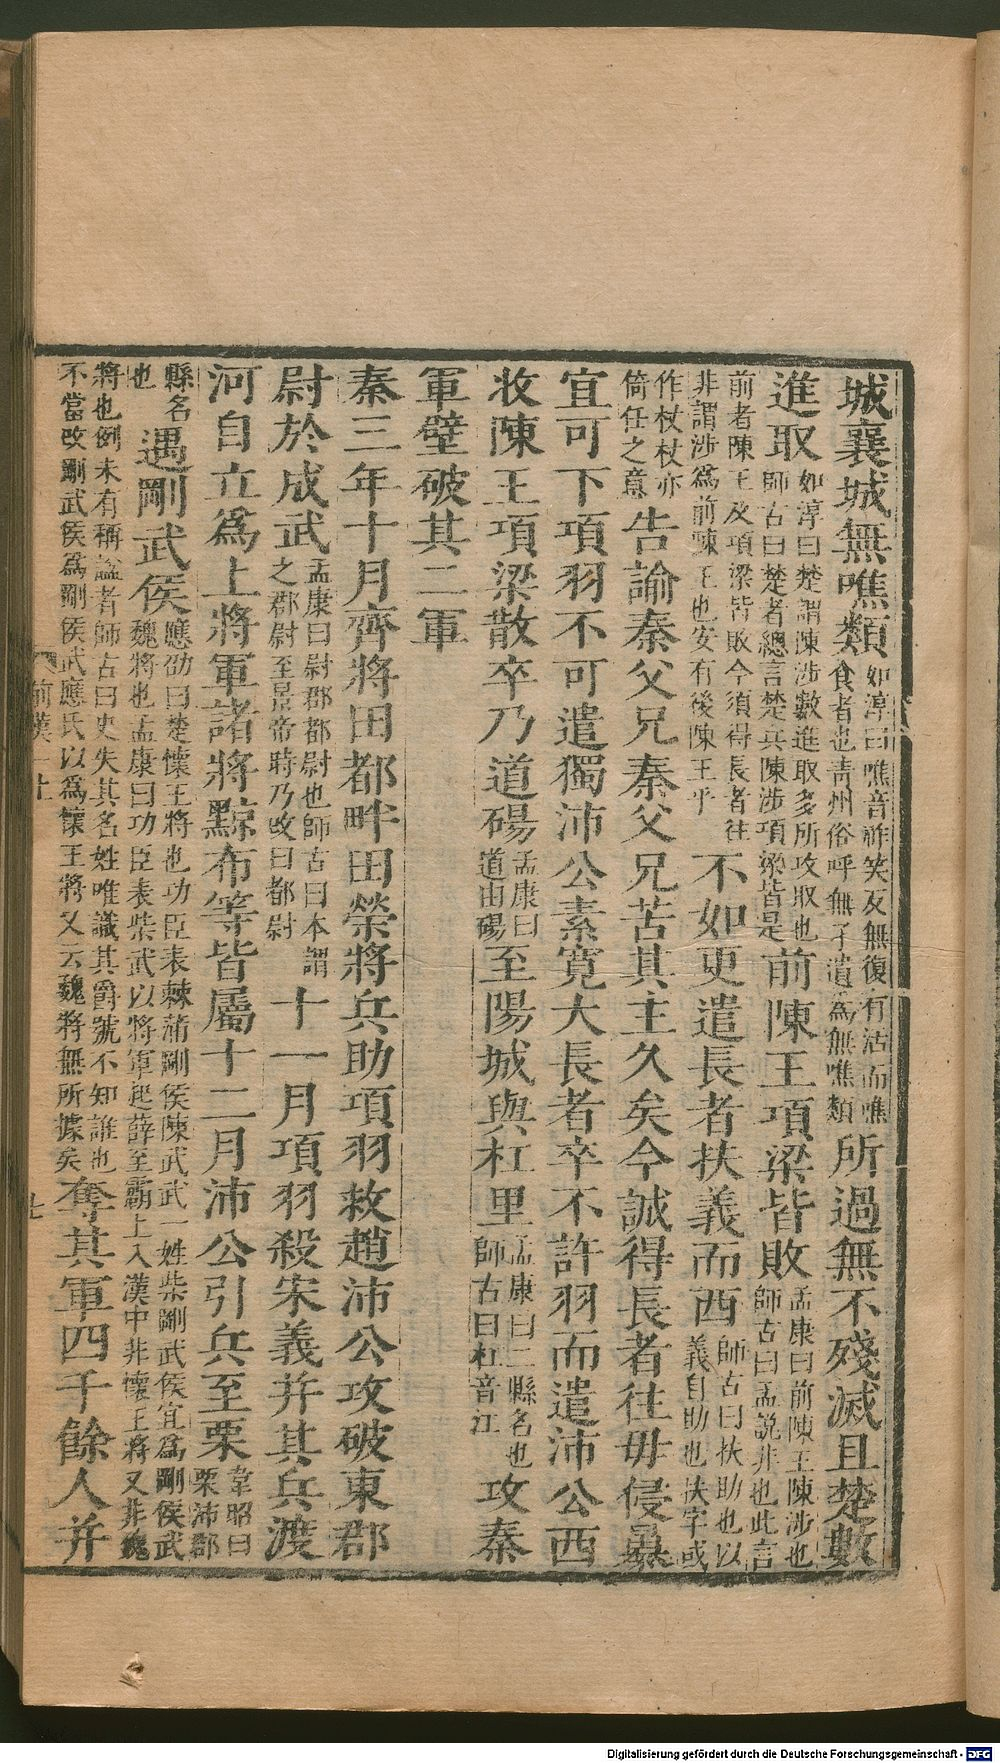 城襄城無噍類如淳曰噍音祚笑反無復有活而噍食者也靑州俗呼無孑遺爲無噍類所過無不殘滅且楚數
進取如淳曰楚謂陳涉數進取多所攻取也師古曰楚者總言楚兵陳涉項梁皆是前陳王項梁皆敗孟康曰前陳王陳涉也師古曰孟說非也此言
前者陳王及項梁皆敗今須得長者往非謂涉爲前陳王也安有後陳王乎不如更遣長者扶義而西師古曰扶助也以義自助也扶字或
作杖杖亦倚任之意告諭秦父兄秦父兄苦其主久矣今誠得長者往毋侵暴
宜可下項羽不可遣獨沛公素寬大長者卒不許羽而遣沛公西
收陳王項梁散卒乃道碭孟康曰道由碭至陽城與杠里孟康曰二縣名也師古曰杠音江攻秦
軍壁破其二軍
秦三年十月齊將田都畔田榮將兵助項羽救趙沛公攻破東郡
尉於成武孟康曰尉郡都尉也師古曰本謂之郡尉至景帝時乃改曰都尉十一月項羽殺宋義并其兵渡
河自立爲上將軍諸將黥布等皆屬十二月沛公引兵至栗韋昭曰栗沛郡
縣名也遇剛武侯應劭曰楚懷王將也功臣表棘蒲剛侯陳武武一姓柴剛武侯宜爲剛侯武魏將也孟康曰功臣表柴武以將軍起薛至霸上入漢中非懷王將又非魏
將也例未有稱諡者師古曰史失其名姓唯識其爵號不知誰也不當改剛武侯爲剛侯武應氏以爲懷王將又云魏將無所據矣奪其軍四千餘人并
前漢一上
七
Digitalisierung gefördert durch die Deutsche Forschungsgemeinschaft - DFG